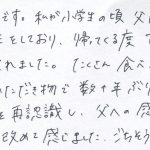 です。私が小学生の頃 父
をしており、帰ってくる度
れました。たくさん食べ
いただき物で 数十年ぶり
を再認識し、父への感
改めて感じました。ごちそう